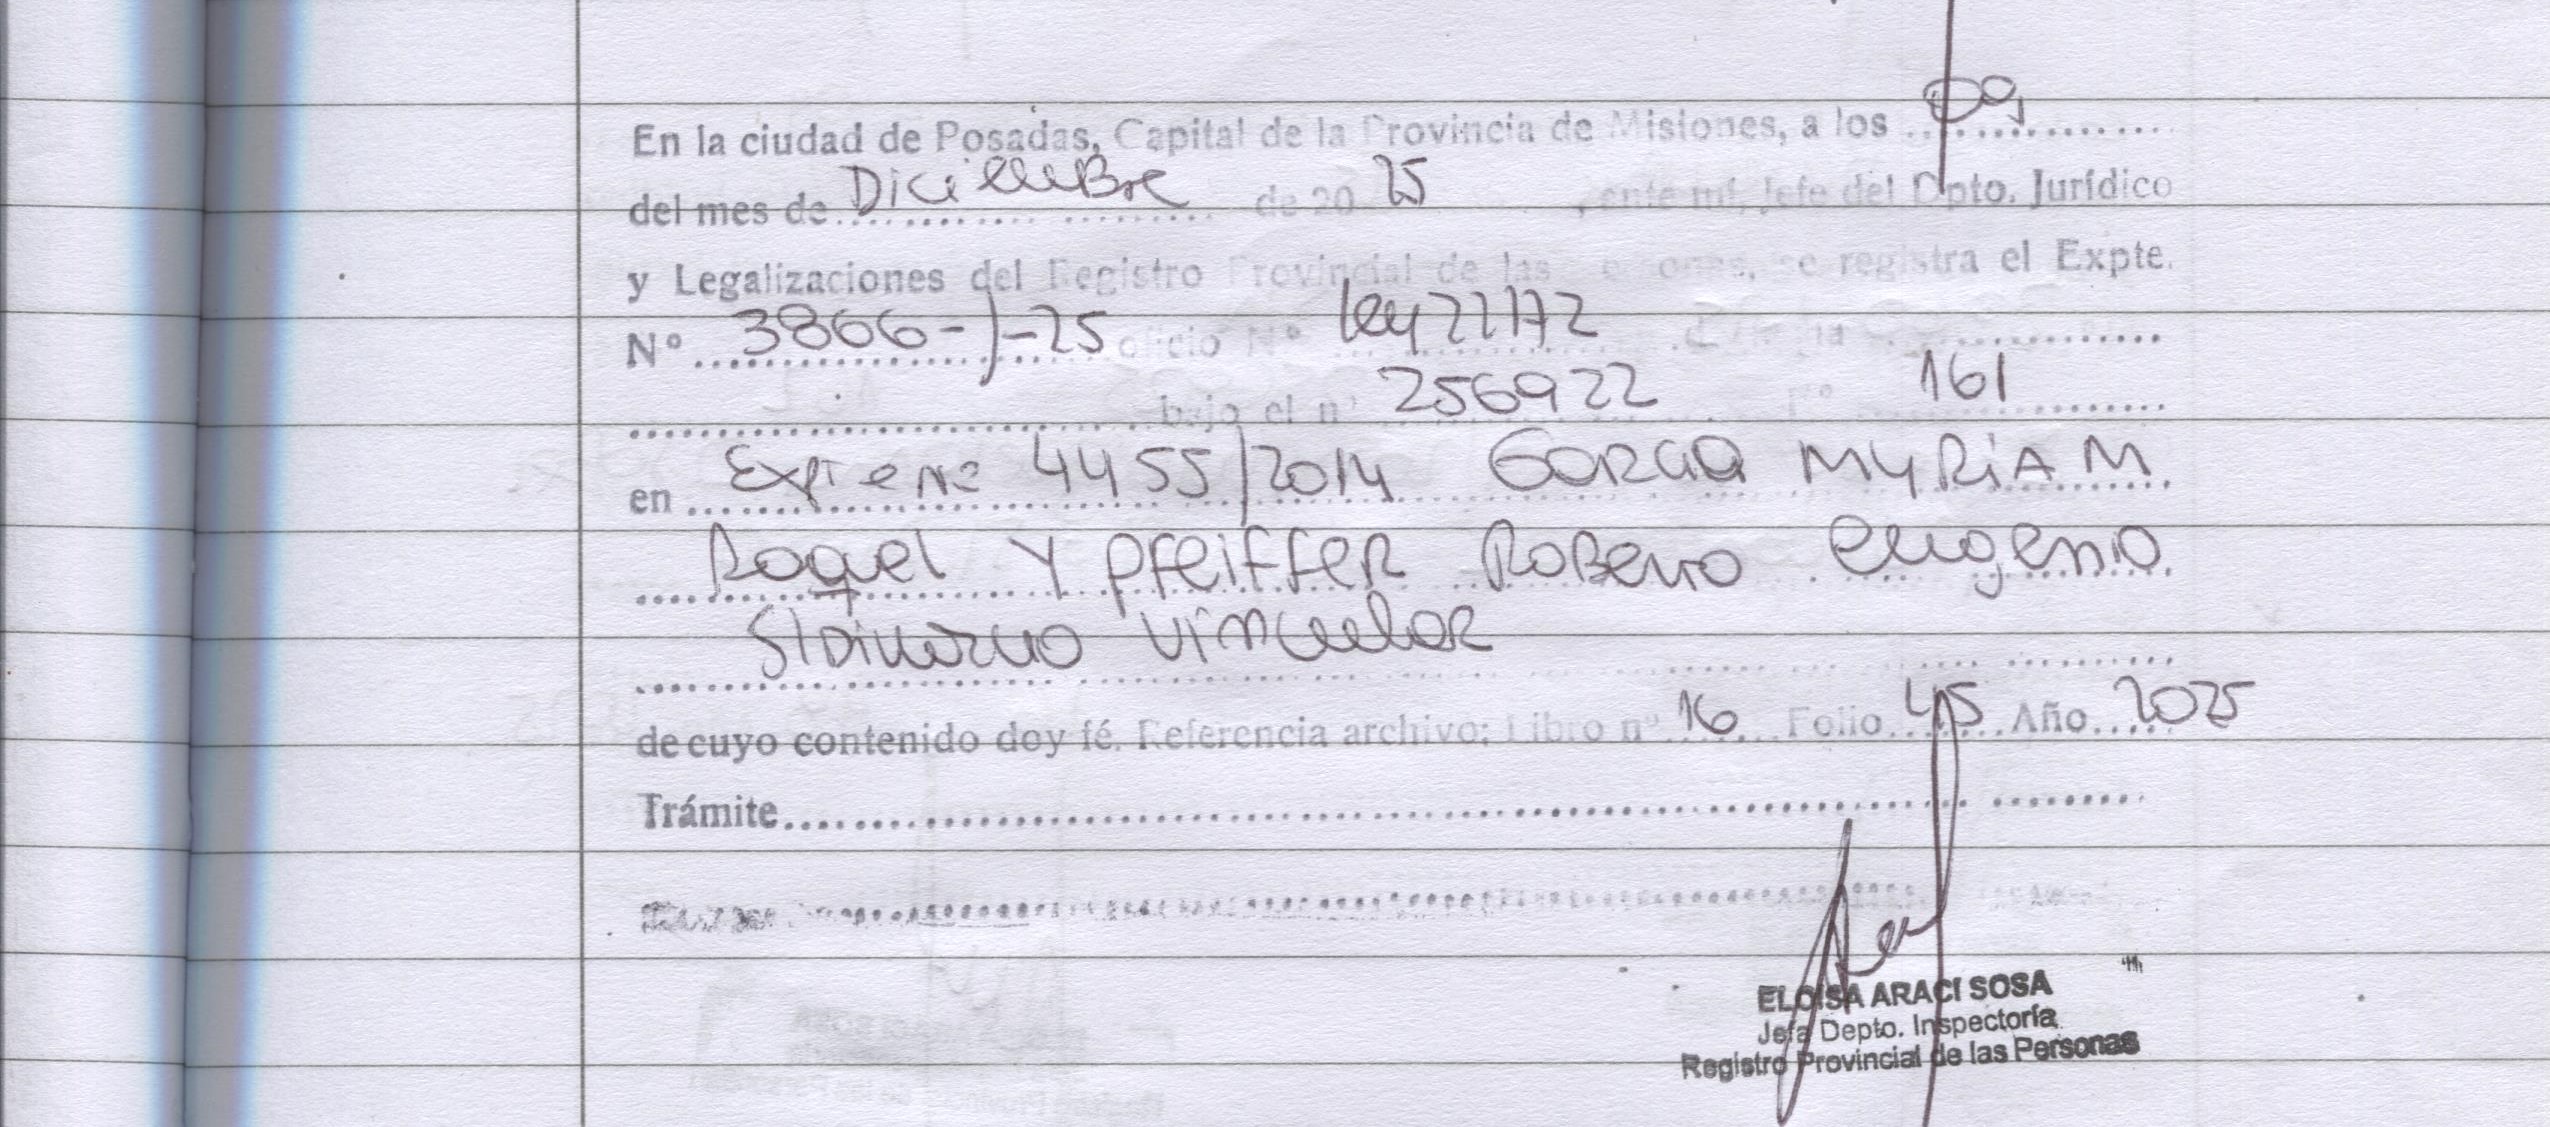 En la ciudad de Posadas, Capital de la Provincia de Misiones, a los 09
del mes de DiciembRe de 20 25 , ante mí, Jefe del Dpto. Jurídico
y Legalizaciones del Registro Provincial de las se registra el Expte.
N° 3866-J-25 oficio N° ley 22172
bajo el n° 256922 F° 161
en Expte Nº 4455/2014 GARCIA MYRiAM
Raquel Y PfeiffeR RobeRto eugenio
S/Divorcio vinculaR
de cuyo contenido doy fé. Referencia archivo: Libro nº 16 Folio 45 Año 2025
Trámite
ELOISA ARACI SOSA
Jefa Depto. Inspectoría
Registro Provincial de las Personas